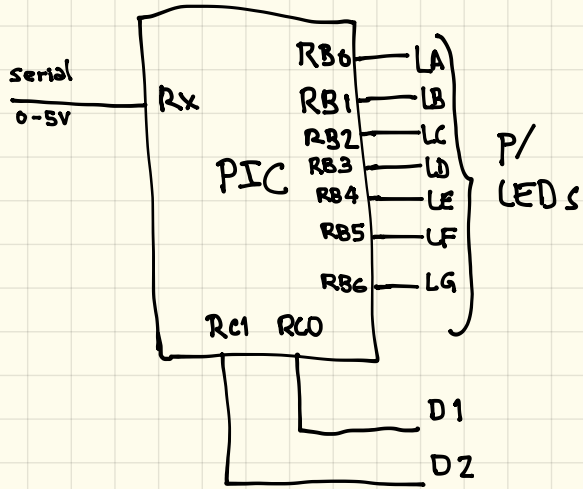 serial
0-5V
RX
PIC
RB0
RB1
RB2
RB3
RB4
RB5
RB6
LA
LB
LC
LD
LE
LF
LG
P/
LEDs
RC1 RC0
D1
D2